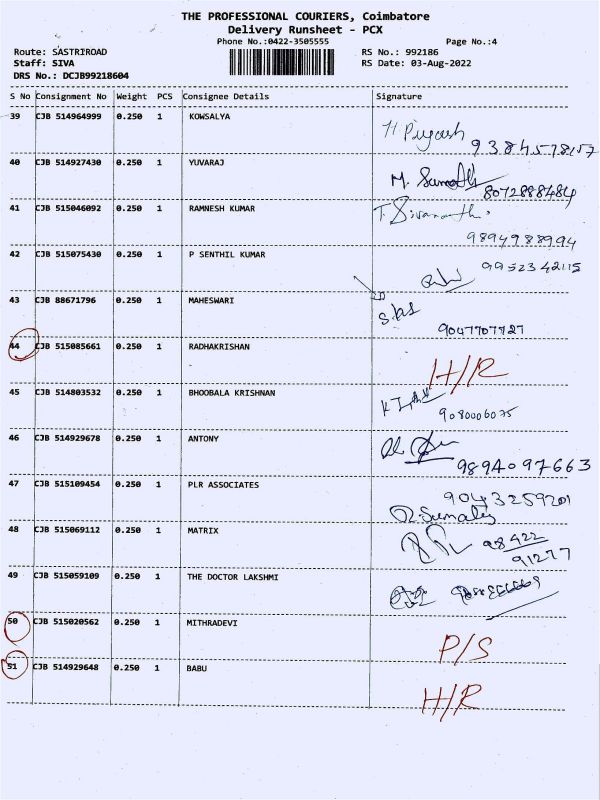 THE PROFESSIONAL COURIERS, Coimbatore
Delivery Runsheet - PCX
Phone No.:0422-3505555 Page No.:4
Route: SASTRIROAD RS No.: 992186
Staff: SIVA RS Date: 03-Aug-2022
DRS No.: DCJB99218604
S No Consignment No Weight PCS Consignee Details Signature
39 CJB 514964999 0.250 1 KOWSALYA
9384578157
40 CJB 514927430 0.250 1 YUVARAJ
8072888484
41 CJB 515046092 0.250 1 RAMNESH KUMAR
9894988994
42 CJB 515075430 0.250 1 P SENTHIL KUMAR
9952342115
43 CJB 88671796 0.250 1 MAHESWARI
9047707727
44 CJB 515085661 0.250 1 RADHAKRISHAN
H/R
45 CJB 514803532 0.250 1 BHOOBALA KRISHNAN
9080006075
46 CJB 514929678 0.250 1 ANTONY
9894097663
47 CJB 515109454 0.250 1 PLR ASSOCIATES
9043259201
48 CJB 515069112 0.250 1 MATRIX
98422
91277
49 CJB 515059109 0.250 1 THE DOCTOR LAKSHMI
50 CJB 515020562 0.250 1 MITHRADEVI
P/S
51 CJB 514929648 0.250 1 BABU
H/R